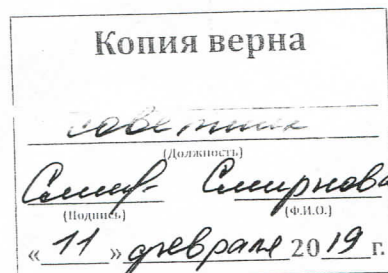 Копия верна
советник
(Должность)
Смир- Смирнова
(Подпись) (Ф.И.О.)
« 11 » февраля 20 19 г.